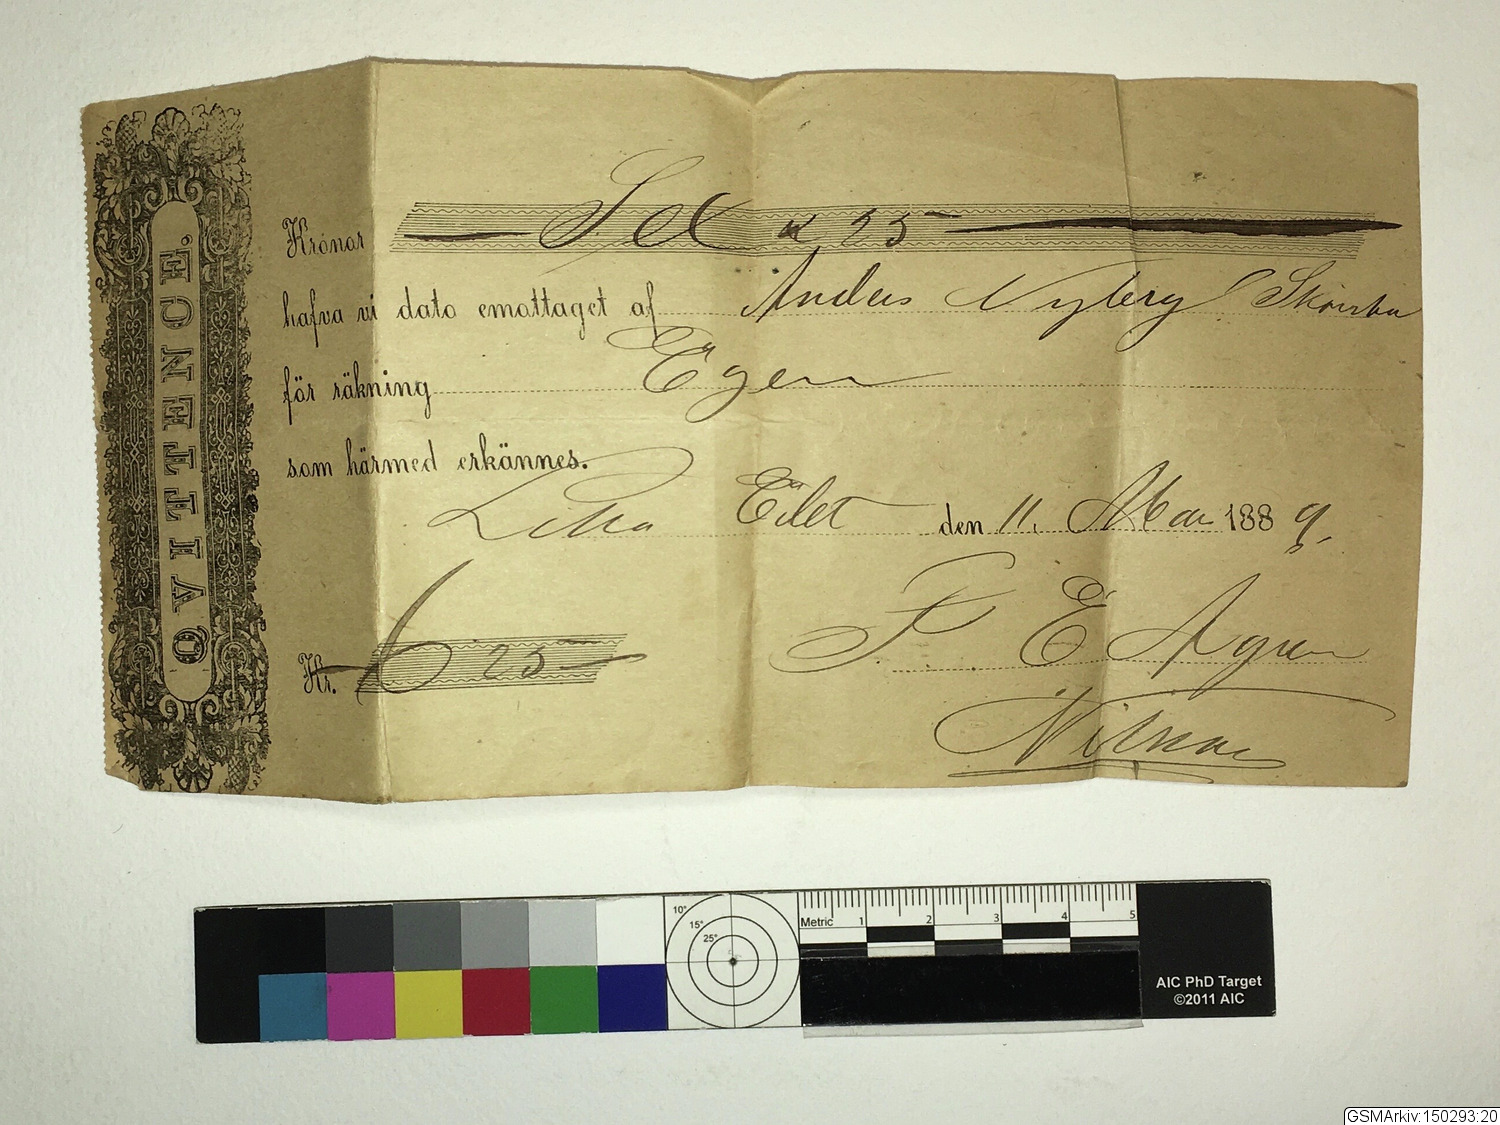 QVITTENCE.
Kronor Sex & 25
hafva vi dato emottaget af Anders Nyberg
för räkning Egen
som härmed erkännes.
Lilla Edet den 11. Mai 1889.
Kr. 6 25
P. E. Agren
10° 15° 25°
Metric 1 2 3 4 5
AIC PhD Target
©2011 AIC
GSMArkiv:150293:20